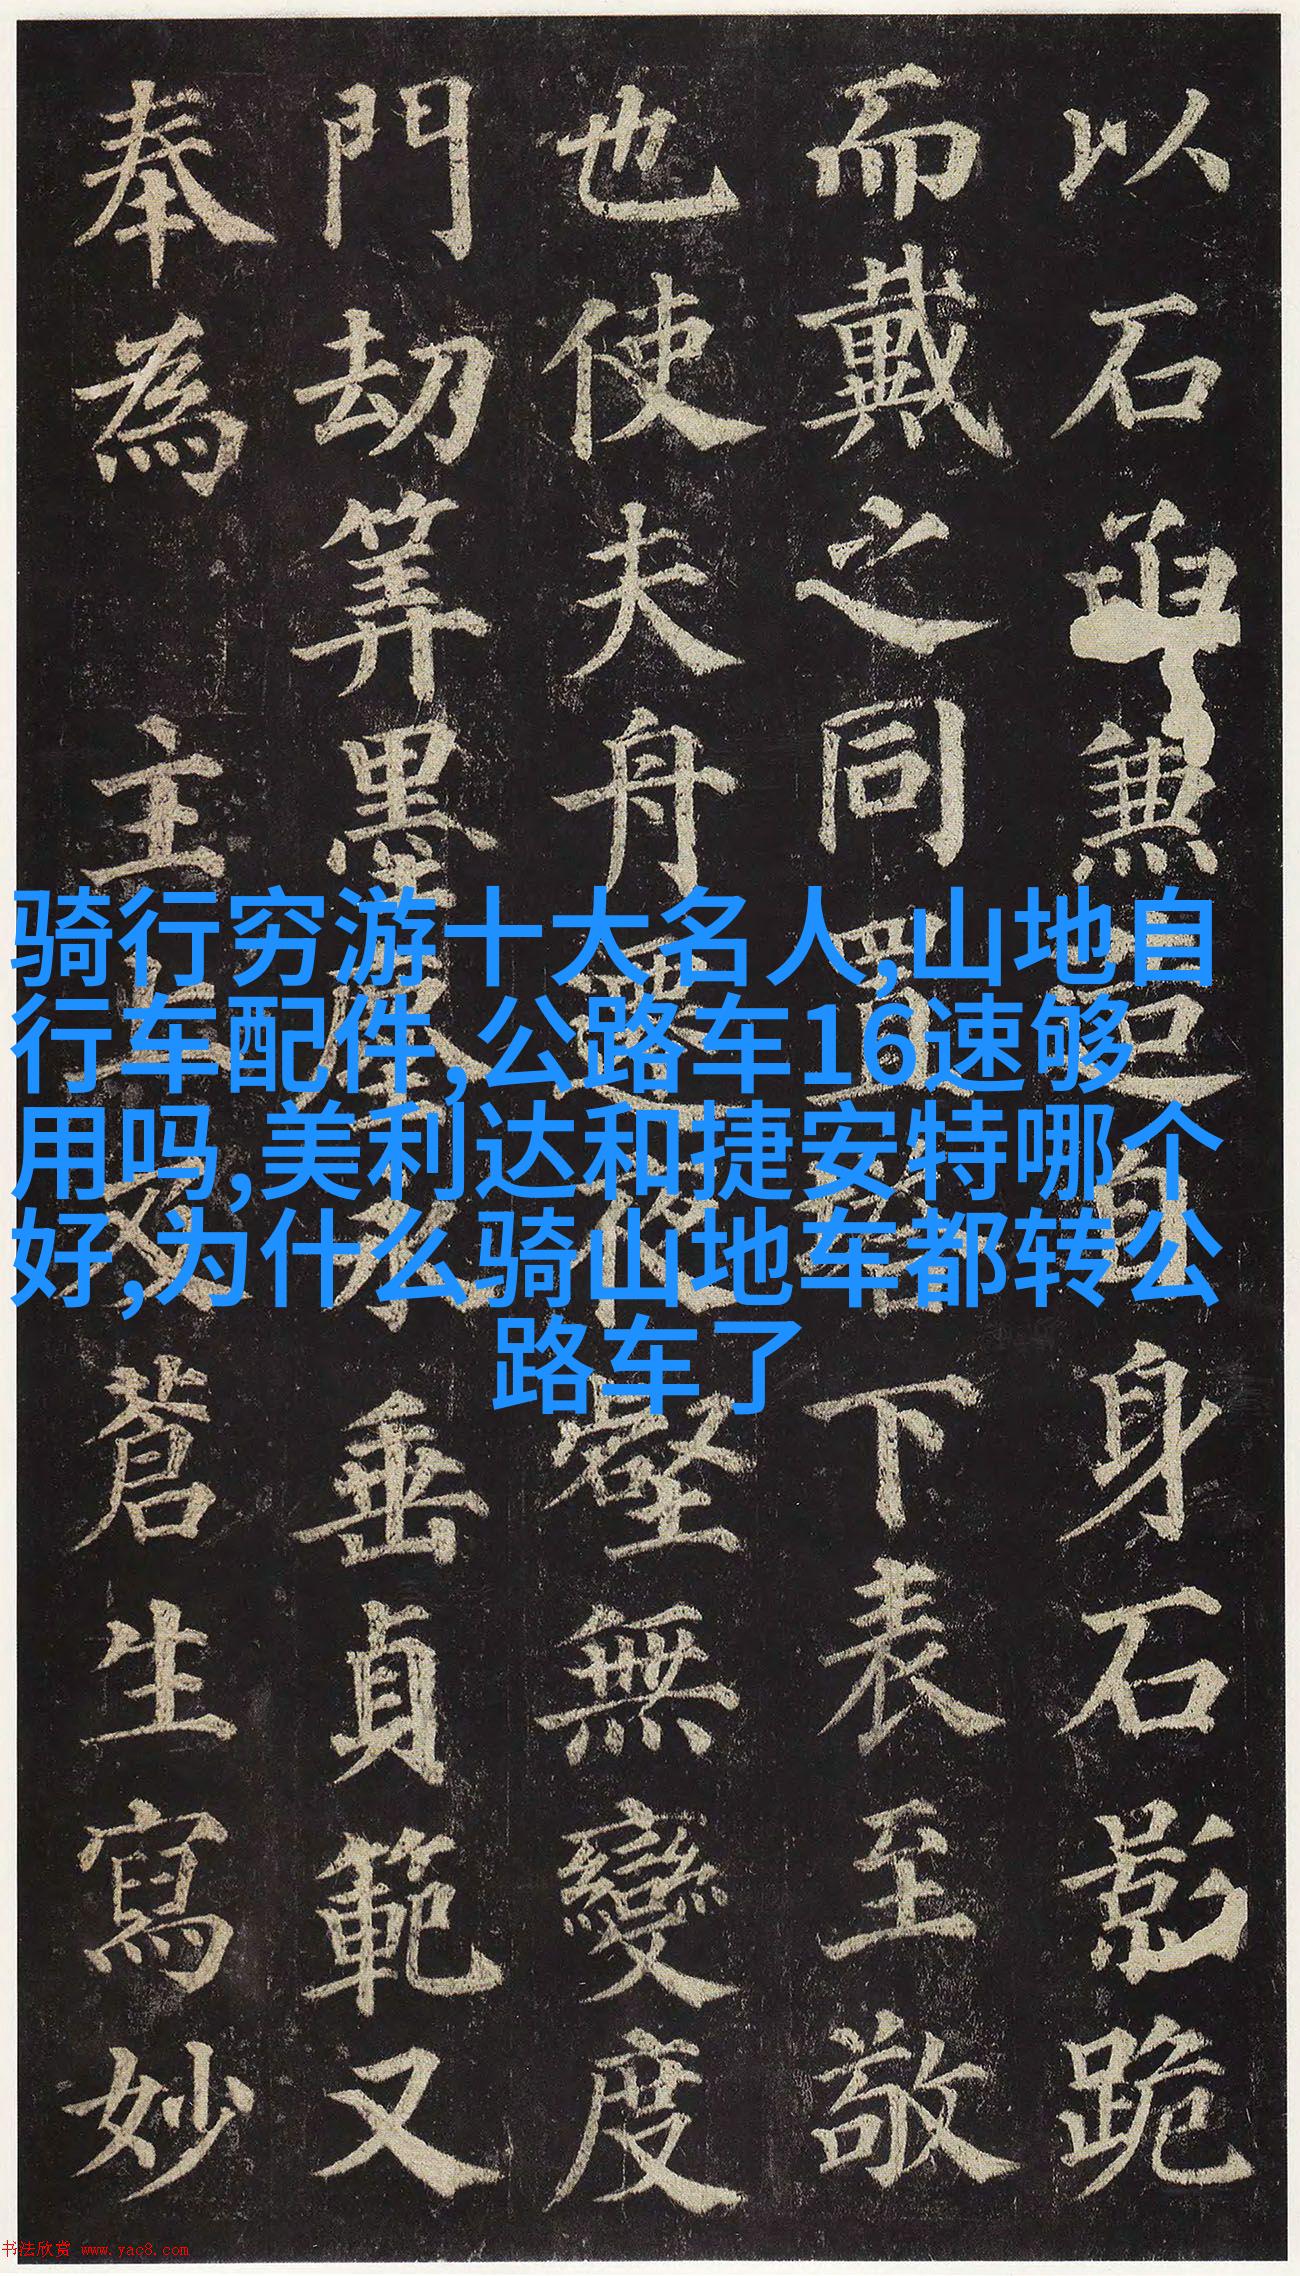 以石函兼造自身石影跪
而戴之同置塔下表至敬
也使夫舟遷夜壑無變度
門劫筭墨塵永垂貞範又
奉為主上及蒼生寫妙
骑行穷游十大名人,山地自
行车配件,公路车16速够
用吗,美利达和捷安特哪个
好,为什么骑山地车都转公
路车了
书法欣赏 www.yac8.com